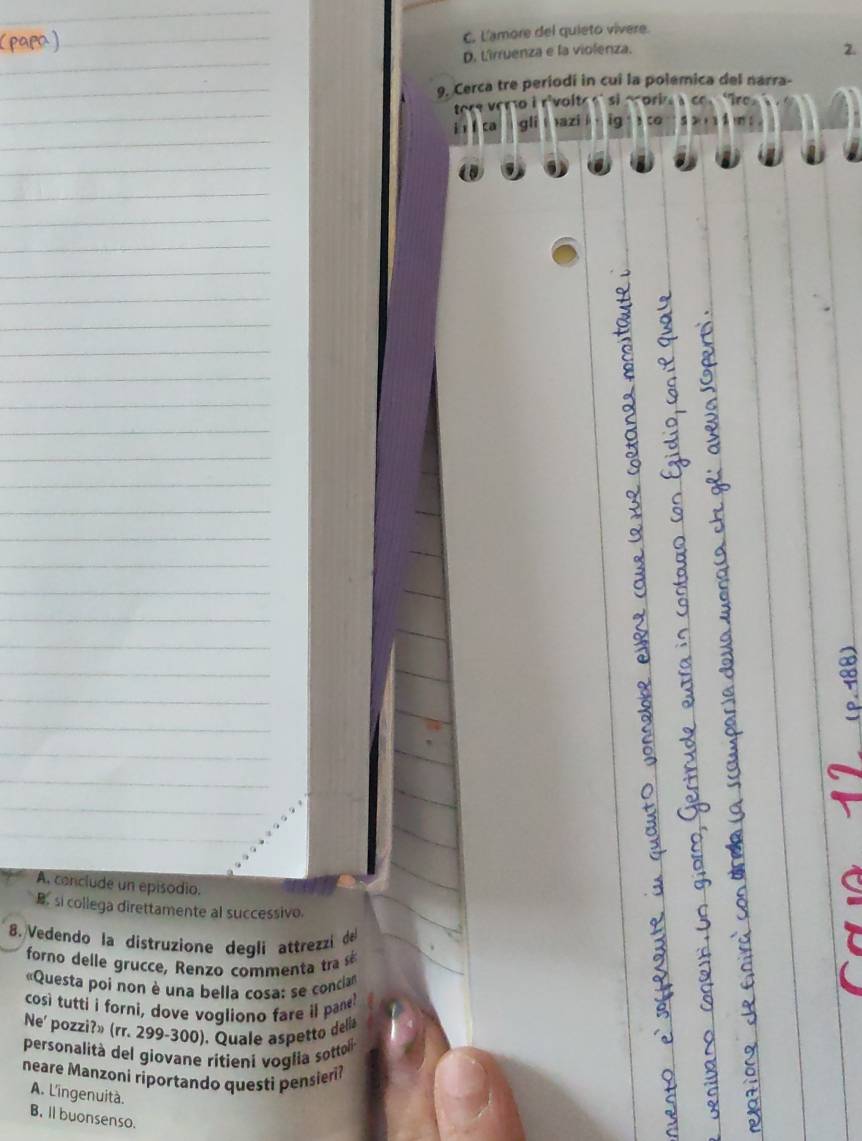 (papa)
C. L'amore del quieto vivere.
D. L'irruenza e la violenza.
2.
9. Cerca tre periodi in cui la polemica del narra-
A. conclude un episodio.
B. si collega direttamente al successivo.
8. Vedendo la distruzione degli attrezzi del
forno delle grucce, Renzo commenta tra sé:
«Questa poi non è una bella cosa: se concian
così tutti i forni, dove vogliono fare il pane?
Ne' pozzi?» (rr. 299-300). Quale aspetto della
personalità del giovane ritieni voglia sottoli-
neare Manzoni riportando questi pensieri?
A. L'ingenuità.
B. Il buonsenso.
è sofferente in quanto vorrebbe essere come le sue coetanee
venivano concessi. Un giorno, Gertrude entra in contatto con Egidio, con il quale
relazione che finirà con la scomparsa della monaca che gli aveva scoperti.
12 (p. 188)